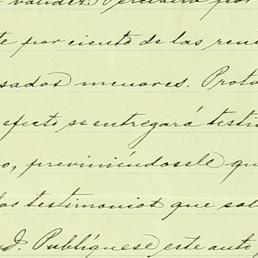 validez. Percibirá por
te por ciento de las ren
sados menores. Proto
efecto se entregará testi
o, previniéndosele qu
os testimonios que sol
d. Publíquese este auto